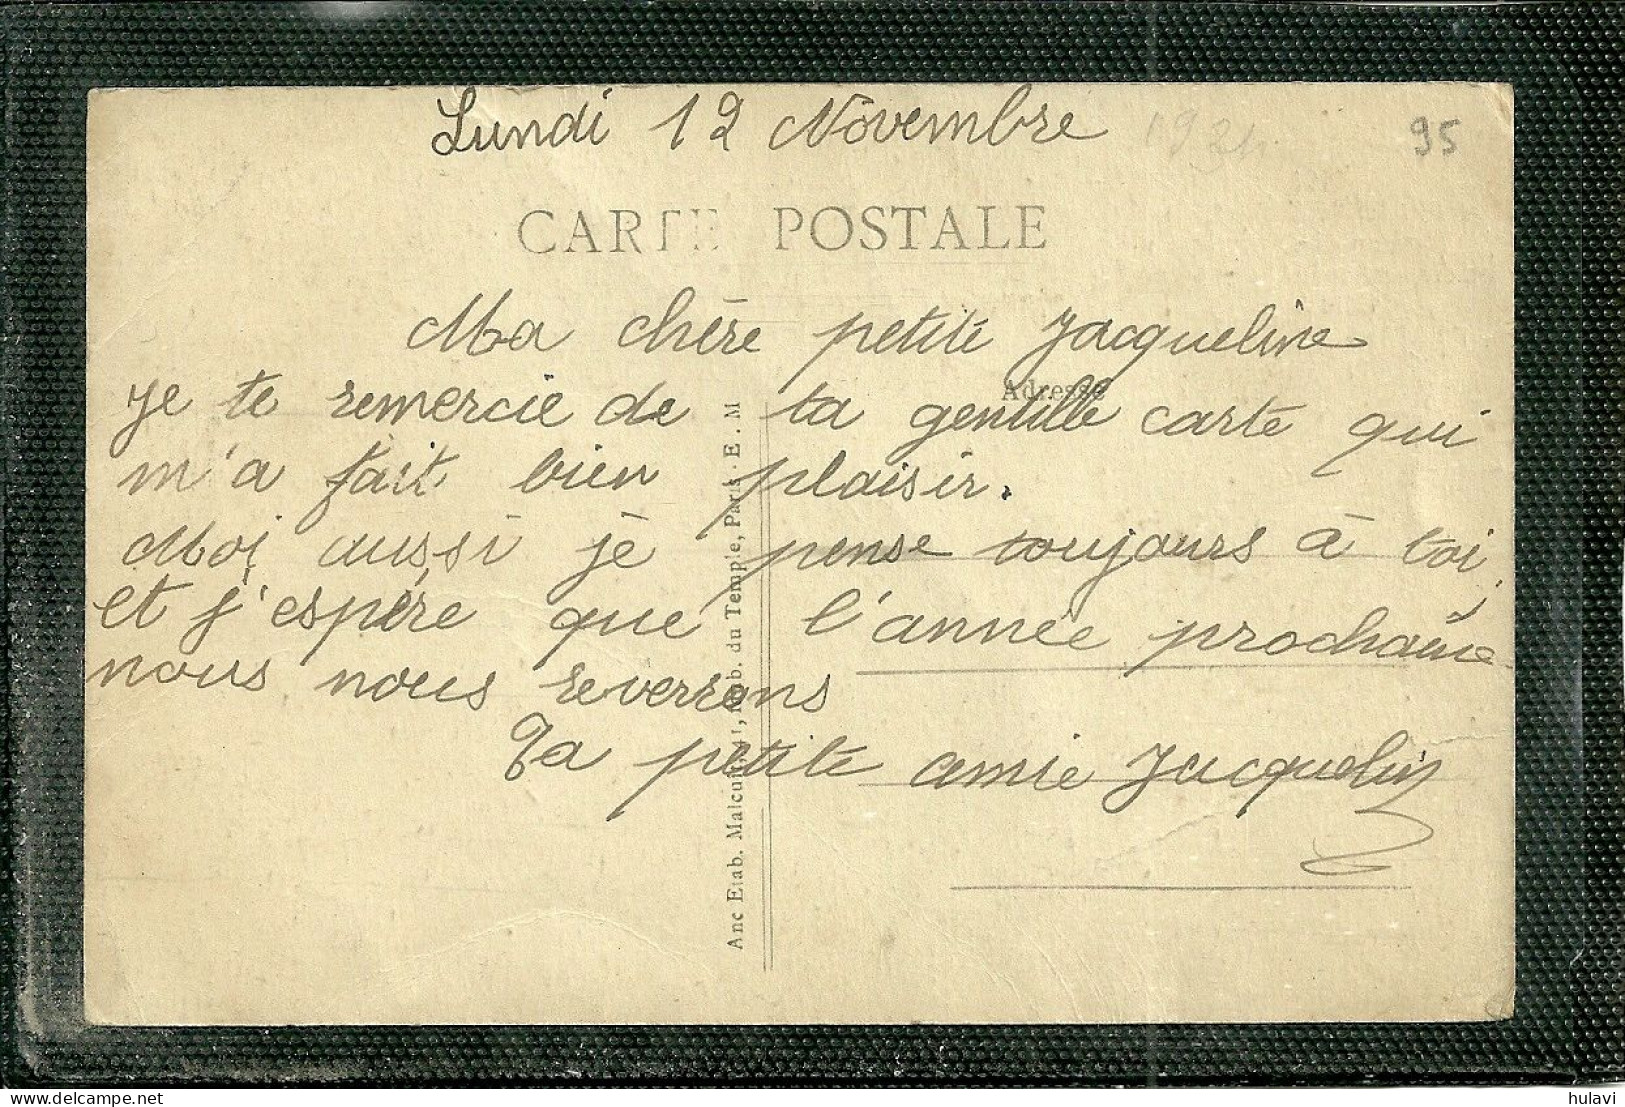 Lundi 12 Novembre 1924 95
CARTE POSTALE
Ma chère petite Jacqueline
Adresse
Je te remercie de ta gentille carte qui
m'a fait bien plaisir.
Moi aussi je pense toujours à toi,
et j'espère que l'année prochaine
nous nous reverrons
Ta petite amie Jacqueline
Anc Etab. Malcuit, Faub. du Temple, Paris - E. M
hulavi